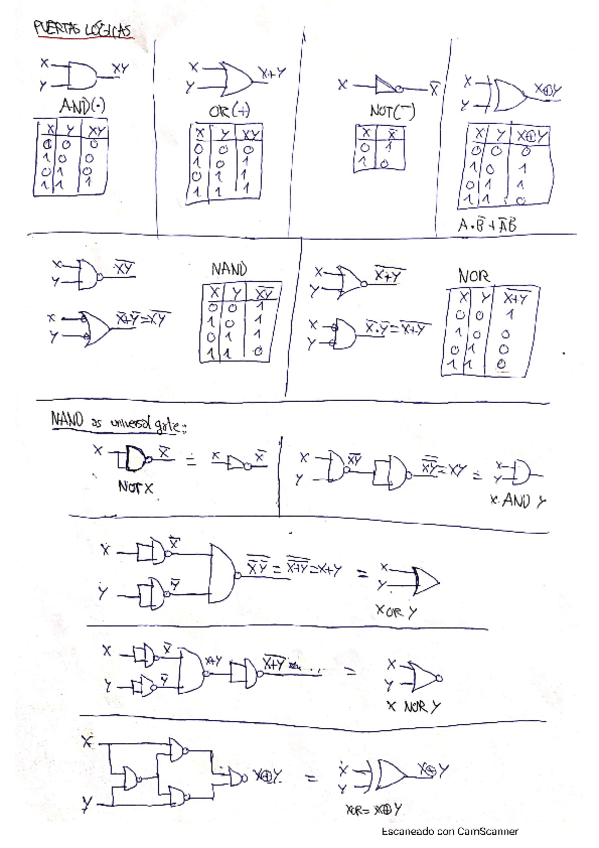 PUERTAS LÓGICAS
X
Y
XY
AND(·)
X Y XY
0 0 0
1 0 0
0 1 0
1 1 1
X
Y
X+Y
OR(+)
X Y XY
0 0 0
1 0 1
0 1 1
1 1 1
X
X̅
NOT(¯)
X X̅
0 1
1 0
X
Y
X⊕Y
X Y X⊕Y
0 0 0
1 0 1
0 1 1
1 1 0
A·B̅+A̅B
X
Y
X̅Y̅
X
Y
X̅+Y̅=X̅Y̅
NAND
X Y X̅Y̅
0 0 1
1 0 1
0 1 1
1 1 0
X
Y
X̅+̅Y̅
X
Y
X̅·Y̅=X̅+̅Y̅
NOR
X Y X̅+̅Y̅
0 0 1
1 0 0
0 1 0
1 1 0
NAND as universal gate:
X X̅ = X X̅
NOT X
X
Y
X̅Y̅
X̅Y̅=XY =
X
Y
X AND Y
X X̅
Y Y̅
X̅ Y̅ = X+Y = X+Y =
X
Y
X OR Y
X X̅
Y Y̅
X+Y
X̅+̅Y̅ ... =
X
Y
X NOR Y
X
Y
X⊕Y =
X
Y
X⊕Y
XOR= X⊕Y
Escaneado con CamScanner